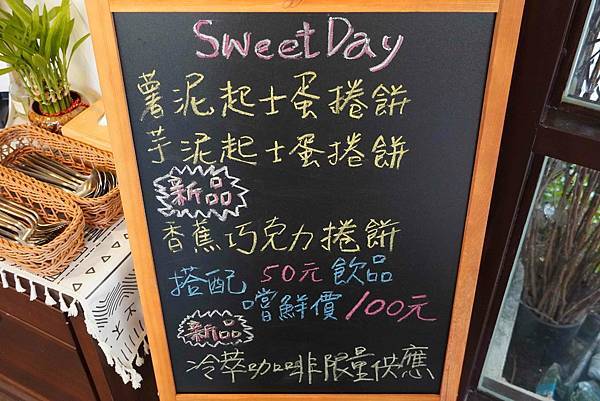 SweetDay
薯泥起士蛋捲餅
芋泥起士蛋捲餅
新品
香蕉巧克力捲餅
搭配 50元飲品
嚐鮮價100元
新品
冷萃咖啡限量供應